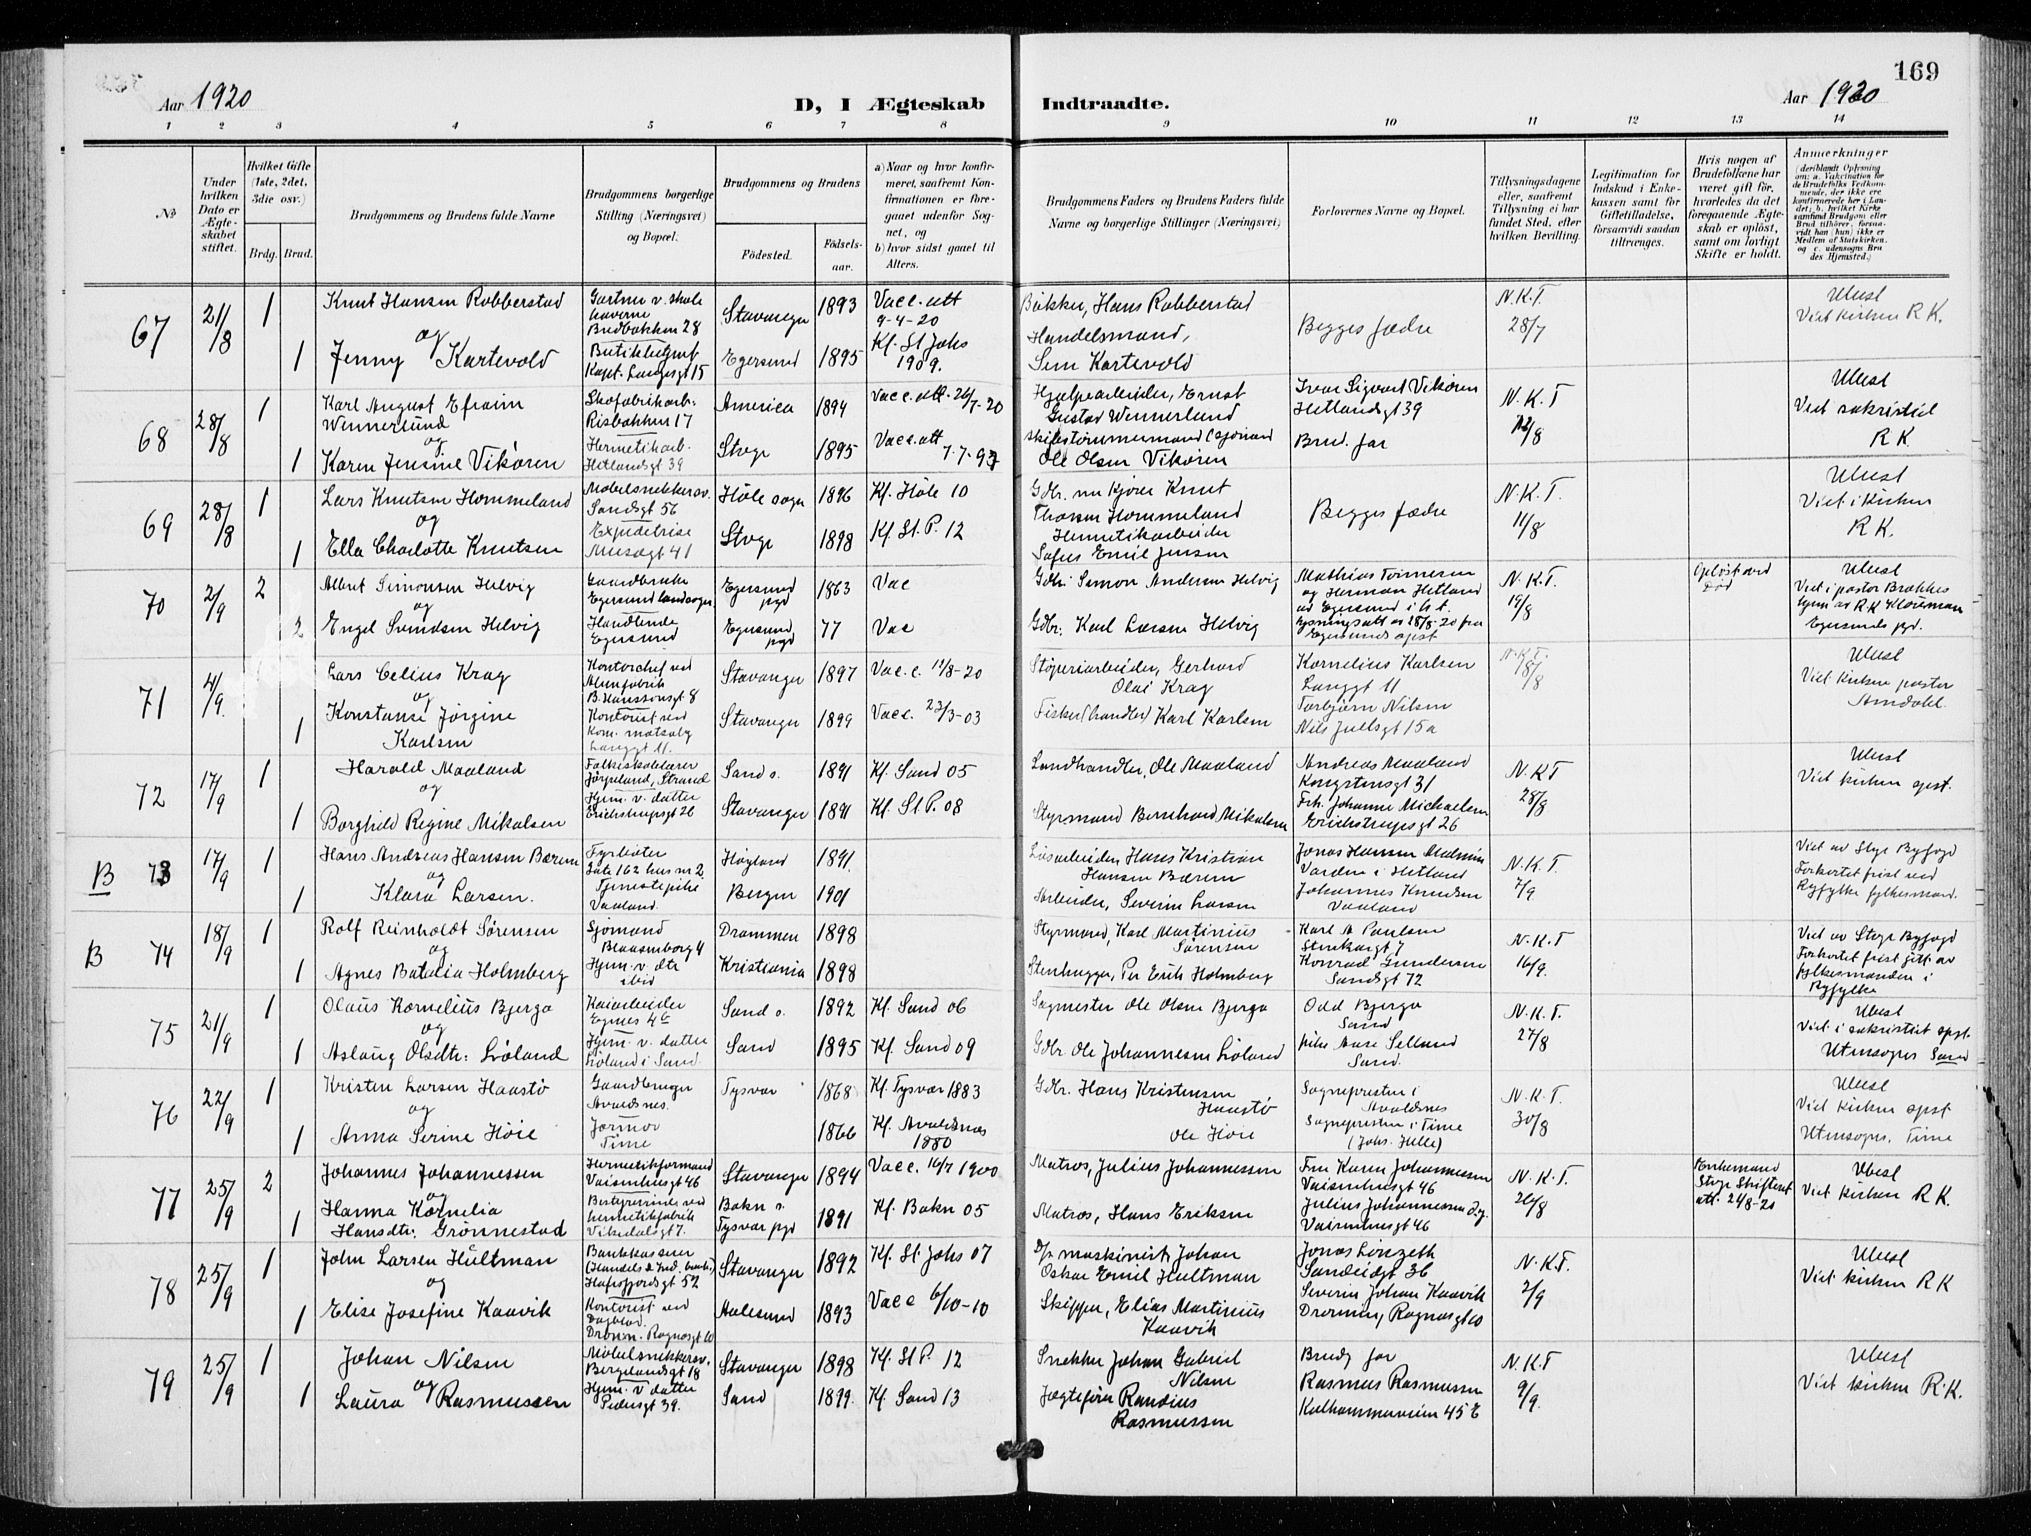 169
Aar 1920
D, I Ægteskab Indtraadte.
Aar 1920
1 2 3 4 5 6 7 8 9 10 11 12 13 14
No
Under hvilken Dato er Ægteskabet stiftet.
Hvilket Gifte (1ste, 2det, 3die osv.)
Brdg. Brud.
Brudgommens og Brudens fulde Navne
Brudgommens borgerlige Stilling (Næringsvei) og Bopæl.
Brudgommens og Brudens
Födested. Födselsaar.
a) Naar og hvor konfirmeret, saafremt Konfirmationen er foregaaet udenfor Sognet, og
b) hvor sidst gaaet til Alters.
Brudgommens Faders og Brudens Faders fulde Navne og borgerlige Stillinger (Næringsvei)
Forlovernes Navne og Bopæl.
Tillysningsdagene eller, saafremt Tillysning ei har fundet Sted, efter hvilken Bevilling.
Legitimation for Indskud i Enkekassen samt for Giftetilladelse, forsaavidt saadan tiltrænges.
Hvis nogen af Brudefolkene har været gift för, hvorledes da det foregaaende Ægteskab er oplöst, samt om lovligt Skifte er holdt.
Anmerkninger (deriblandt Oplysning om: a. Vakcination for de Brudefolks Vedkommende, der ikke ere konfirmerede her i Landet; b. hvilket Kirkesamfund Brudgom eller Brud tilhörer, forsaavidt han (hun) ikke er Medlem af Statskirken, og c. udensogns Brudes Hjemsted.)
67 21/8 1
Knut Hansen Robberstad
og
1 Jenny Kartevold
Gartner v. skolehaverne
Bredbakken 28
Kapt. Langesgt 15
Stavanger 1893
Egersund 1895
Vacc. att 9-4-20
Kf. St Johs 1909.
Bakker, Hans Robberstad
Handelsmand,
Sem Kartevold
Begges fædre
N.K.T. 28/7
Ubest
Viet kirken R.K.
68 28/8 1
Karl August Efraim Wennerlund
og
1 Karen Jensine Vikören
Skofabrikarb.
Risbakken 17
Hermetikarb.
Hetlandsgt 39
America 1894
Stvgr 1895
Vacc. att. 26/7-20
Vacc. att
Hjælpearbeider, Ernst
Gustav Wennerlund
Ole Olsen Vikören
Ivar Sigvart Vikören
Hetlandsgt 39
Brud. far
N.K.T
Ubest
Viet sakristiet
R K.
69 28/8 1
Lars Knutsen Hommeland
og
1 Ella Charlotte Knutsen
Møbelsnekkersv.
Sandsgt 56
Expeditrise
Musegt 41
Höle sogn 1896
Stvgr 1898
Kf. Höle 10
Kf. St. P. 12
Gdbr. nu kjörer Knut
Thorsen Hommeland
Hermetikarbeider
Sofus Emil Jensen
Begges fædre
N.K.T. 11/8
Ubest
Viet i kirken
R K.
70 2/9 2
Albert Simonsen Helvig
og
2 Engel Svendsen Helvig
Gaardbruker
Egersund landsogn
Handlende
Egersund
Egersund pgd 1863
Egersund pgd 77
Vac
Vac
Gdbr. Simon Andersen Helvig
Gdbr. Karl Larsen Helvig
Mathias Tönnesen
og Herman Hetland
av Egersund i h.t.
lysningsatt av 28/8-20 fra
Egersunds spst
N.K.T. 19/8
Oplöst ved död
Ubest
Viet i pastor Brekkes
hjem av R K Kloreman
Egersunds pgd.
71 4/9
Lars Celius Krag
og
1 Konstanse Jørgine Karlsen
Kontorchef ved
B. Hanssonsgt 8
Kontorist ved
Langgt 11.
Stavanger 1897
Stavanger 1899
Vacc. 11/8-20
Vacc. 23/3-03
Støperiarbeider, Gerhard
Olai Krag
Fisker (handler) Karl Karlsen
Kornelius Karlsen
Langgt 11
Torbjörn Nilsen
Nils Juelsgt 15a
N.K.T. 18/8
Ubest
Viet kirken pastor
Amdahl.
72 17/9 1
Harald Maaland
og
1 Borghild Regine Mikalsen
Folkeskolelærer
Jørpeland, Strand
Hjem. v. datter
Erichstrupsgt 26
Sand s. 1891
Stavanger 1891
Kf. Sand 05
Kf. St P. 08
Landhandler, Ole Maaland
Styrmand Bernhard Mikalsen
Andreas Maaland
Kongstensgt 31
Frk. Johanne Michaelsen
Erichstrupsgt 26
N.K.T 28/8
Ubest
Viet kirken spst.
B 73 17/9 1
Hans Andreas Hansen Bærem
og
1 Klara Larsen.
Fyrböter
Gate 162 hus nr 2
Tjenestepike
Vaaland.
Høyland 1891.
Bergen 1901
Løsarbeider, Hans Kristian
Hansen Bærem
Arbeider, Severin Larsen
Jonas Hansen
Varden i Hetland
Johannes Knudsen
Vaaland
N.K.T. 7/9
Viet av Stvgr Byfogd
Forkortet frist ved
Ryfylke fylkesmand.
B 74 18/9 1
Rolf Reinholdt Sørensen
og
1 Agnes Batalia Holmberg
Sjömand
Blaasenborg 4
Hjem. v. dtr
ibid
Drammen 1898
Kristiania 1898
Styrmand, Karl Martinius
Sørensen
Stenhugger, Per Erik Holmberg
Karl A Paulsen
Stenkargt 7
Konrad Gundersen
Sandsgt 72
N.K.T 16/9.
Viet av Stvgr Byfogd
Forkortet frist gitt av
fylkesmanden i
Ryfylke
75 21/9 1
Olaus Kornelius Bjerga
og
1 Aslaug Olsdtr: Lröland
Kaiarbeider
Egnes 4
Hjem. v. datter
Sand s. 1892
Sand 1895
Kf. Sand 06
Kf. Sand 09
Sagmester Ole Olsen Bjerga
Gdbr. Ole Johannesen
Odd Bjerga
Sand
pike Aase Selland
Sand.
N.K.T. 27/8
Ubest
Viet i sakristiet spst.
Utensogns Sand
76 22/9 1
Kristen Larsen Haastö
og
1 Anna Serine Höie
Gaardbruger
Avaldsnes.
Jormor
Time
Tysvær 1868
1866
Kf. Tysvær 1883
Kf. Avaldsnes 1880
Gdbr. Hans Kristensen
Haastö
Ole Höie
Sognepresten i
Avaldsnes
Sognepresten i Time
(Johs. Hille)
N.K.T. 30/8
Ubest
Viet kirken spst
Utensogns. Time
77 25/9 2
Johannes Johannessen
og
1 Hanna Kornelia
Hansdtr. Grönnestad
Hermetikformand
Vaisenhusgt 46
hermetikfabrik
Vikedalsgt 7.
Stavanger 1894
Bokn s. Tysvær pgd 1891
Vacc. 16/7 1900
Kf. Bokn 05
Matros, Julius Johannessen
Matros, Hans Eriksen
Fru Karen Johannessen
Vaisenhusgt 46
Julius Johannessen
Vaisenhusgt 46
N.K.T. 26/8
Enkemand
Stvgr Skifteret
att. 24/8-20
Ubest
Viet kirken R K.
78 25/9 1
John Larsen Hultman
og
1 Elise Josefine Kaavik
Bankkasserer
Hafrsfjordsgt 52
Kontorist ved
Dagblad.
Dronn. Ragnasgt 10
Stavanger 1892
Aalesund 1893
Kf. St. Johs 07
Vacc 6/10-10
D/s maskinist, Johan
Oskar Emil Hultman
Skipper, Elias Martinius
Kaavik
Jonas Lorezeth
Sandeidgt 36
Severin Johan Kaavik
Dronnin, Ragnasgt 10
N.K.T. 2/9
Ubest
Viet kirken R K
79 25/9 1
Johan Nilsen
og
1 Laura Rasmussen
Møbelsnekkersv.
Bergelandsgt 18
Hjem. v datter
Pedersgt 39.
Stavanger 1898
Sand 1899.
Kf. St P. 12
Kf. Sand 13
Snekker Johan Gabriel
Nilsen
Jægtefører Randius
Rasmussen
Brudg far
Rasmus Rasmussen
Kalhammerveien 45 E
N.K.T 9/9.
Ubest
Viet kirken R.K.